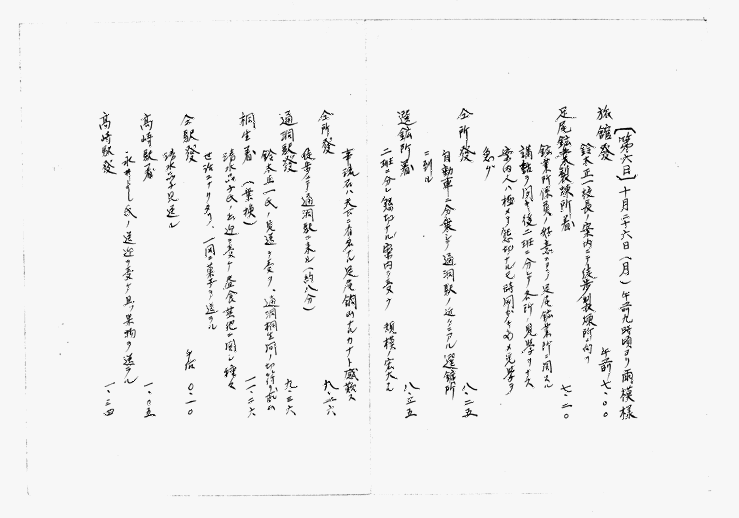 〔第六日〕十月二十六日（月）午前九時頃ヨリ雨模様
旅館發 午前七・〇〇
鈴木正一校長ノ案内ニテ徒歩製煉所ニ向フ
足尾鉱業製煉所着 七・二〇
鉱業所係員ノ好意ニヨリ足尾鉱業所ニ関スル
講話ヲ聞キ後二班ニ分レテ本所ノ見學ヲナス
案内人ハ極メテ懇切ナルモ時間少キ為メ見學ヲ
急グ
仝所發 八・二五
自動車ニ分乗シテ通洞駅ノ近クニアル選鉱所
ニ到ル
選鉱所着 八・三五
二班ニ分レ懇切ナル案内ヲ受ク 規模ノ宏大ナル
事流石ハ天下ニ有名ナル足尾銅山ナルカナト感歎ス
仝所發 九・一六
徒歩ニテ通洞駅ニ来ル（約八分）
通洞駅發 九・三六
鈴木正一氏ノ見送ヲ受ク、通洞桐生間ノ
桐生着（葉模） 一一・二六
清水 氏ノ出迎ヲ受ケ昼食其他ニ関シ種々
世話ニナリタリ、一同ニ菓子ヲ送ル
仝駅發 午后〇・一〇
清水 見送ル
高崎駅着 一・〇五
永井 氏ノ送迎ヲ受ケ且ツ果物ヲ送ラル
高崎駅發 一・三四